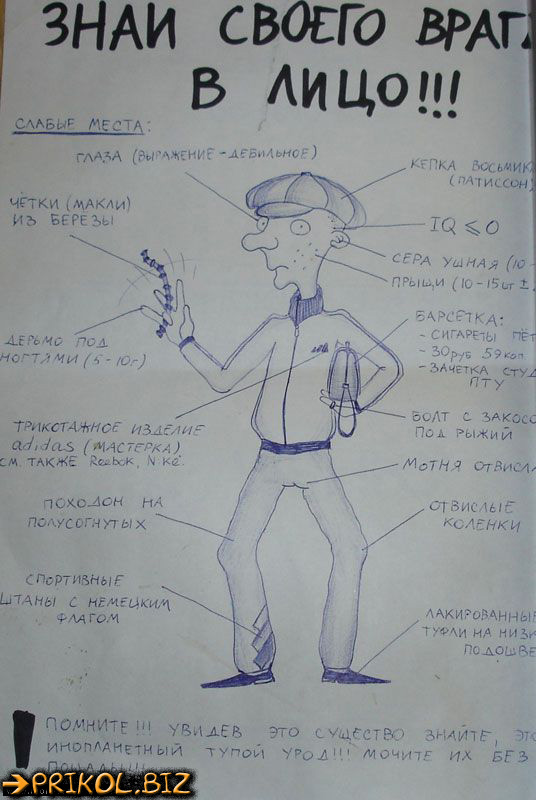 ЗНАЙ СВОЕГО ВРАГА
В ЛИЦО!!!
СЛАБЫЕ МЕСТА:
ГЛАЗА (ВЫРАЖЕНИЕ - ДЕБИЛЬНОЕ)
КЕПКА ВОСЬМИК
(ПАТИССОН)
ЧЁТКИ (МАКЛИ)
ИЗ БЕРЁЗЫ
IQ ⩽ 0
СЕРА УШНАЯ (10-
ПРЫЩИ (10-15шт ±
БАРСЕТКА:
- СИГАРЕТЫ ПЁТ
- 30 руб 59 коп
- ЗАЧЕТКА СТУД
ПТУ
ДЕРЬМО ПОД
НОГТЯМИ (5-10г)
БОЛТ С ЗАКОСО
ПОД РЫЖИЙ
ТРИКОТАЖНОЕ ИЗДЕЛИЕ
adidas (МАСТЕРКА)
СМ. ТАКЖЕ Reebok, Nike.
МОТНЯ ОТВИСЛА
ПОХОДОН НА
ПОЛУСОГНУТЫХ
ОТВИСЛЫЕ
КОЛЕНКИ
СПОРТИВНЫЕ
ШТАНЫ С НЕМЕЦКИМ
ФЛАГОМ
ЛАКИРОВАННЫЕ
ТУФЛИ НА НИЗК
ПОДОШВЕ
! ПОМНИТЕ!!! УВИДЕВ ЭТО СУЩЕСТВО ЗНАЙТЕ, ЭТО
ИНОПЛАНЕТНЫЙ ТУПОЙ УРОД!!! МОЧИТЕ ИХ БЕЗ
ПОЩАДЫ!!!
PRIKOL.BIZ